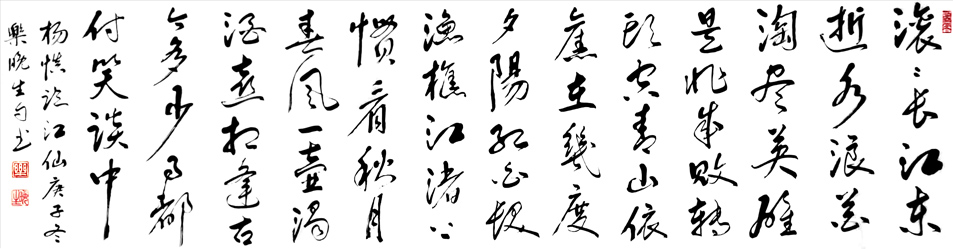 滚滚长江东
逝水浪花
淘尽英雄
是非成败转
头空青山依
舊在幾度
夕陽红白髮
漁樵江渚上
慣看秋月
春風一壺濁
酒喜相逢古
今多少事都
付笑談中
杨慎临江仙庚子冬
樂晚生 书